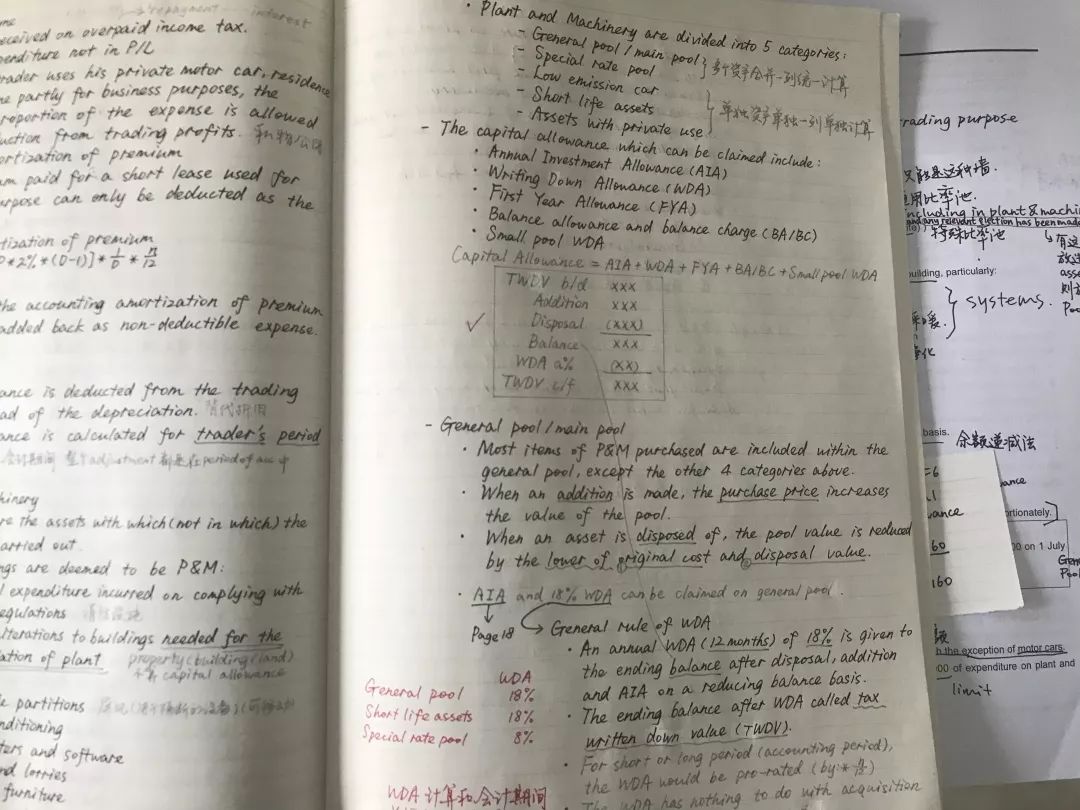 interest
received on overpaid income tax.
penditure not in P/L
rader uses his private motor car, residence
partly for business purposes, the
proportion of the expense is allowed
uction from trading profits.
ortization of premium
paid for a short lease used for
urpose can only be deducted as the
tization of premium
2% * (D-1)] * 1/D * n/12
the accounting amortization of premium
added back as non-deductible expense.
ance is deducted from the trading
ad of the depreciation. 替代折旧
ance is calculated for trader's period
会计期间 整个adjustment都是在period of acc中
hinery
re the assets with which (not in which) the
arried out.
ngs are deemed to be P&M:
l expenditure incurred on complying with
egulations
lterations to buildings needed for the
ation of plant property (building/land)
capital allowance
e partitions
nditioning
ters and software
nd lorries
furniture
· Plant and Machinery are divided into 5 categories:
- General pool / main pool
- Special rate pool
多个资产合并一列统一计算
- Low emission car
- Short life assets
- Assets with private use
单独资产单独一列单独计算
- The capital allowance which can be claimed include:
· Annual Investment Allowance (AIA)
· Writing Down Allowance (WDA)
· First Year Allowance (FYA)
· Balance allowance and balance charge (BA/BC)
· Small pool WDA
Capital Allowance = AIA + WDA + FYA + BA/BC + Small pool WDA
TWDV b/d xxx
Addition xxx
Disposal (xxx)
Balance xxx
WDA a% (xx)
TWDV c/f xxx
- General pool / main pool
· Most items of P&M purchased are included within the
general pool, except the other 4 categories above.
· When an addition is made, the purchase price increases
the value of the pool.
· When an asset is disposed of, the pool value is reduced
by the lower of original cost and disposal value.
· AIA and 18% WDA can be claimed on general pool.
Page 18
General rule of WDA
· An annual WDA (12 months) of 18% is given to
the ending balance after disposal, addition
and AIA on a reducing balance basis.
· The ending balance after WDA called tax
written down value (TWDV).
· For short or long period (accounting period),
the WDA would be pro-rated (by * n/12)
· The WDA has nothing to do with acquisition
WDA
General pool 18%
Short life assets 18%
Special rate pool 8%
WDA 计算和会计期间
trading purpose
只能是这种墙.
including in plant & machi
and any relevant election has been made
特殊比率池
有这
building, particularly:
systems.
basis.
余额递减法
=6
ance
wance
ortionately.
60
00 on 1 July
160
h the exception of motor cars.
00 of expenditure on plant and
limit